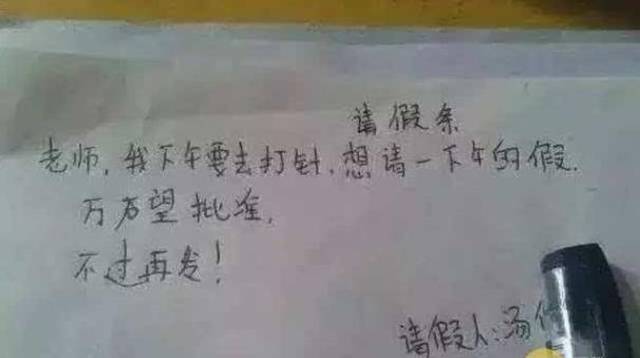 请假条
老师，我下午要去打针，想请一下午的假，
万万望批准，
不过再发！
请假人：汤